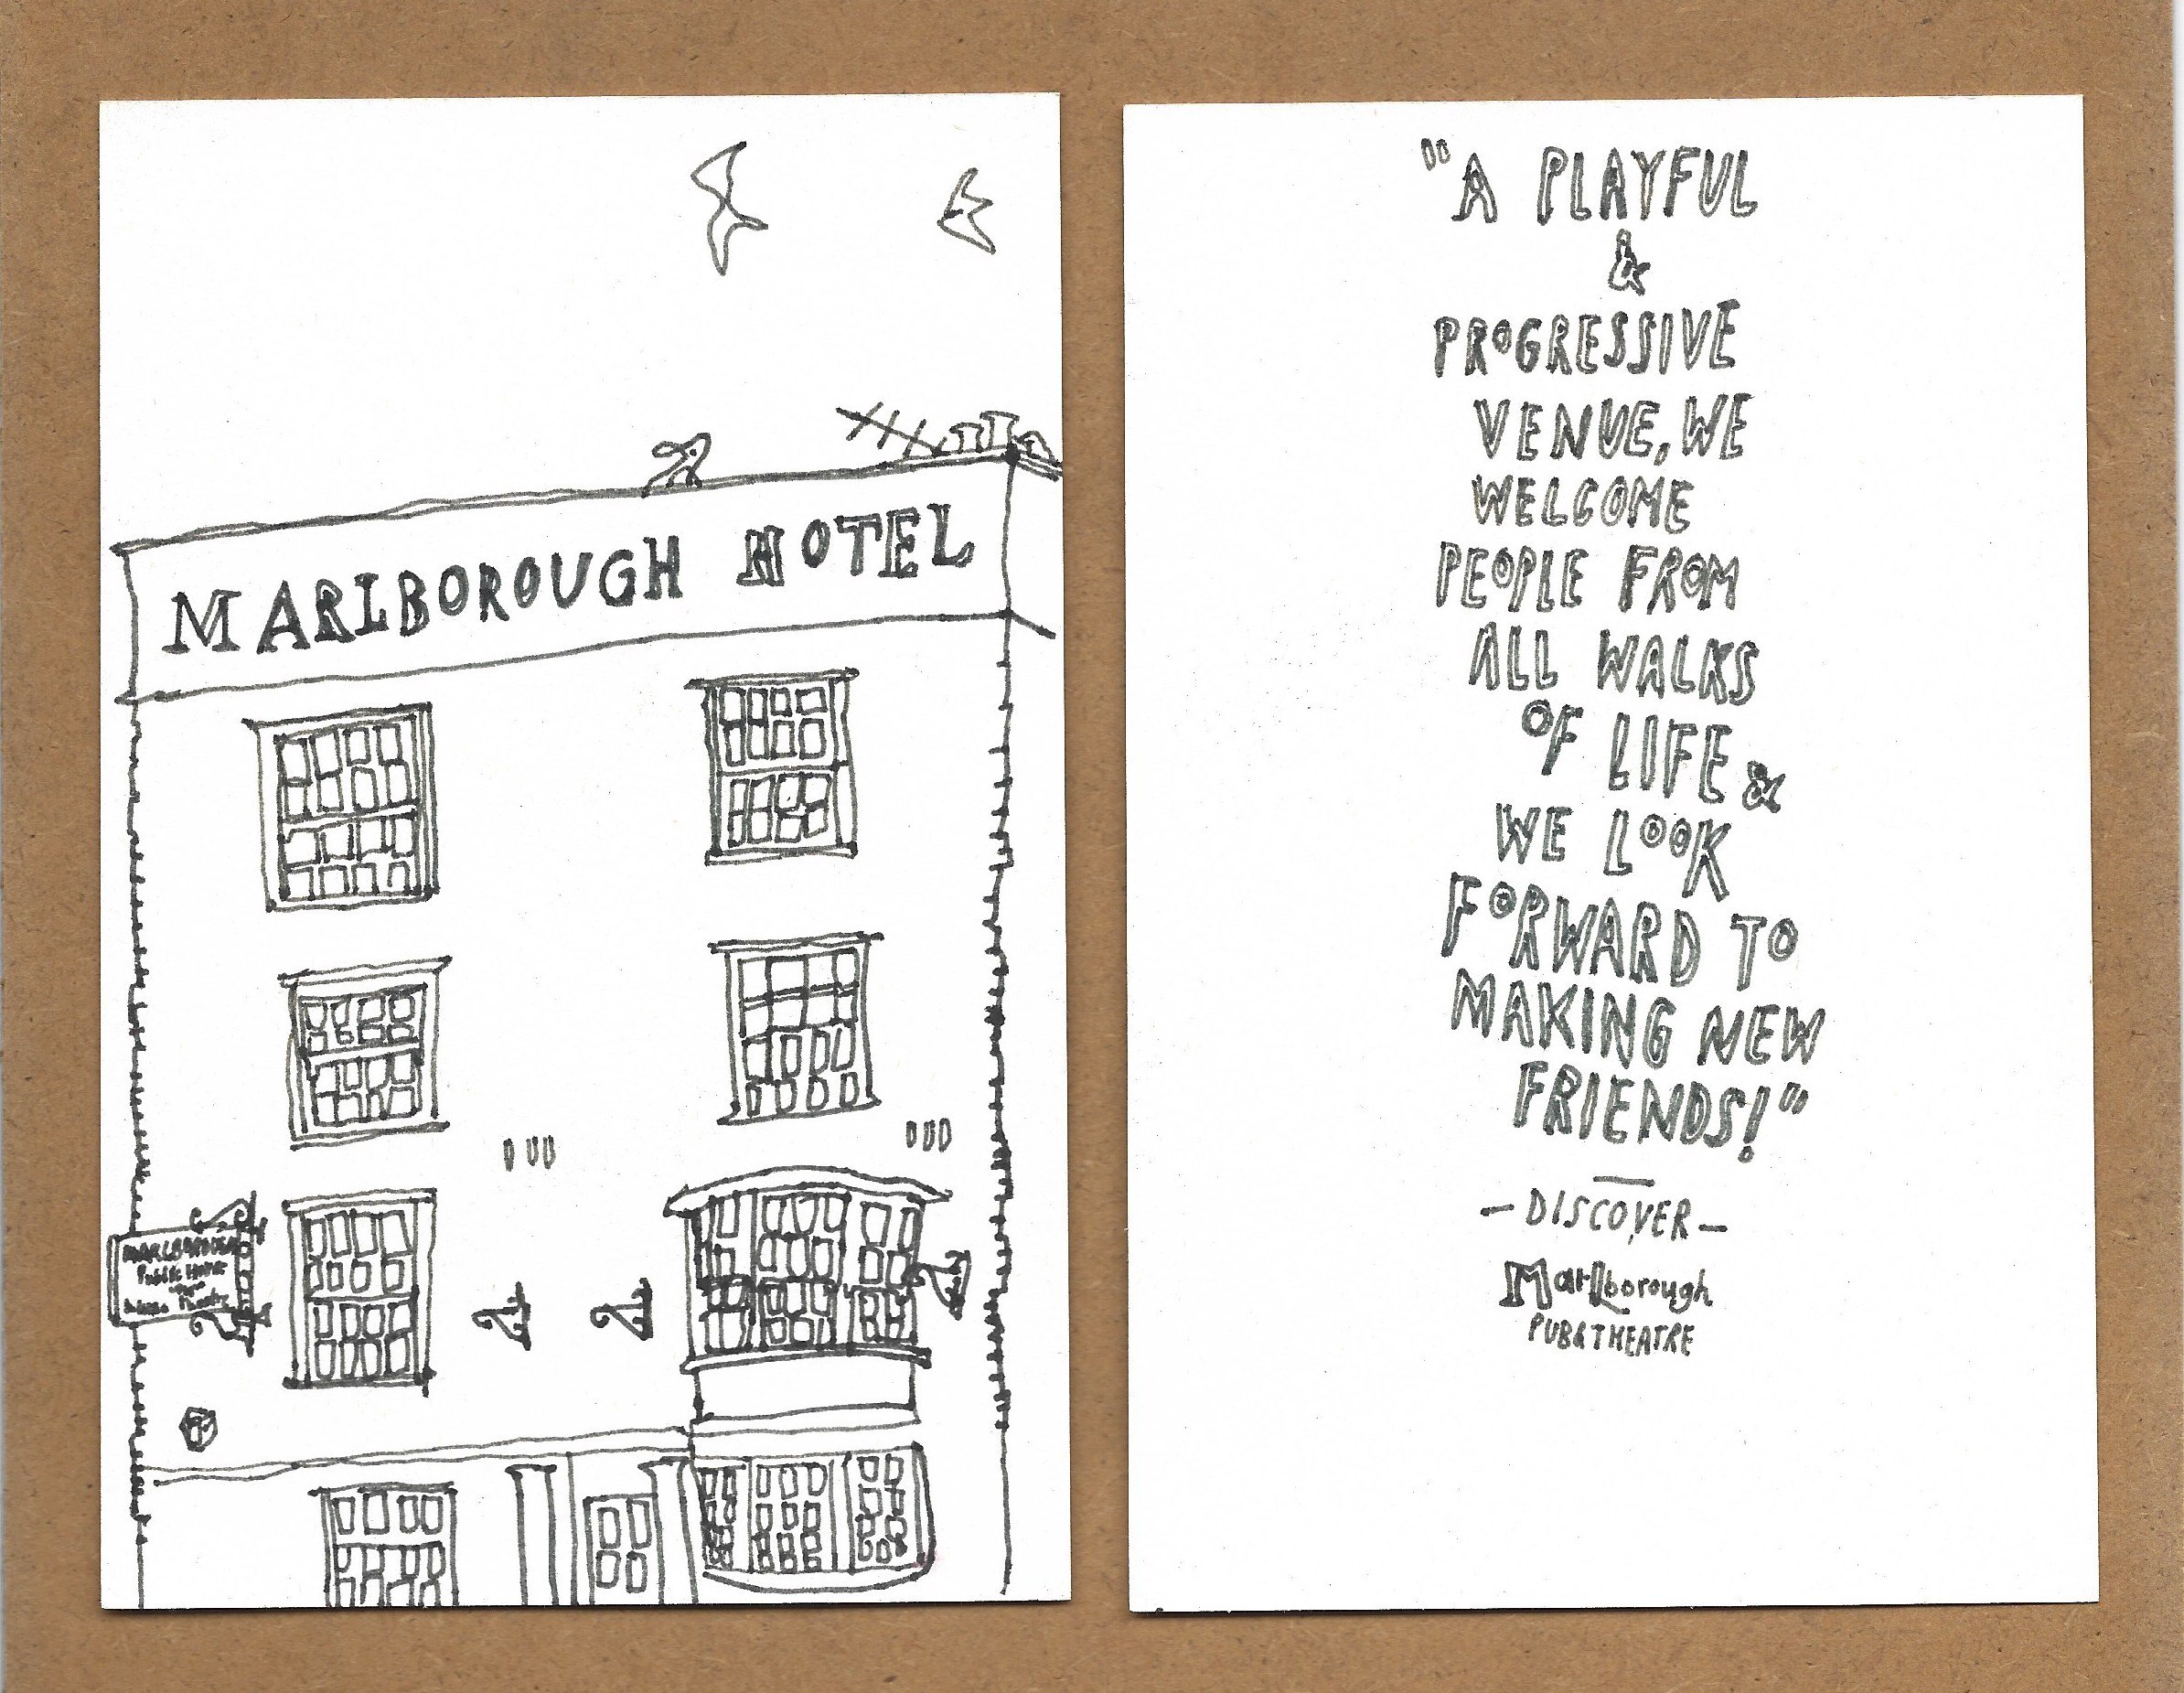 MARLBOROUGH HOTEL
MARLBOROUGH
Public House
Theatre
"A PLAYFUL
&
PROGRESSIVE
VENUE, WE
WELCOME
PEOPLE FROM
ALL WALKS
OF LIFE &
WE LOOK
FORWARD TO
MAKING NEW
FRIENDS!"
—DISCOVER—
Marlborough
PUB&THEATRE